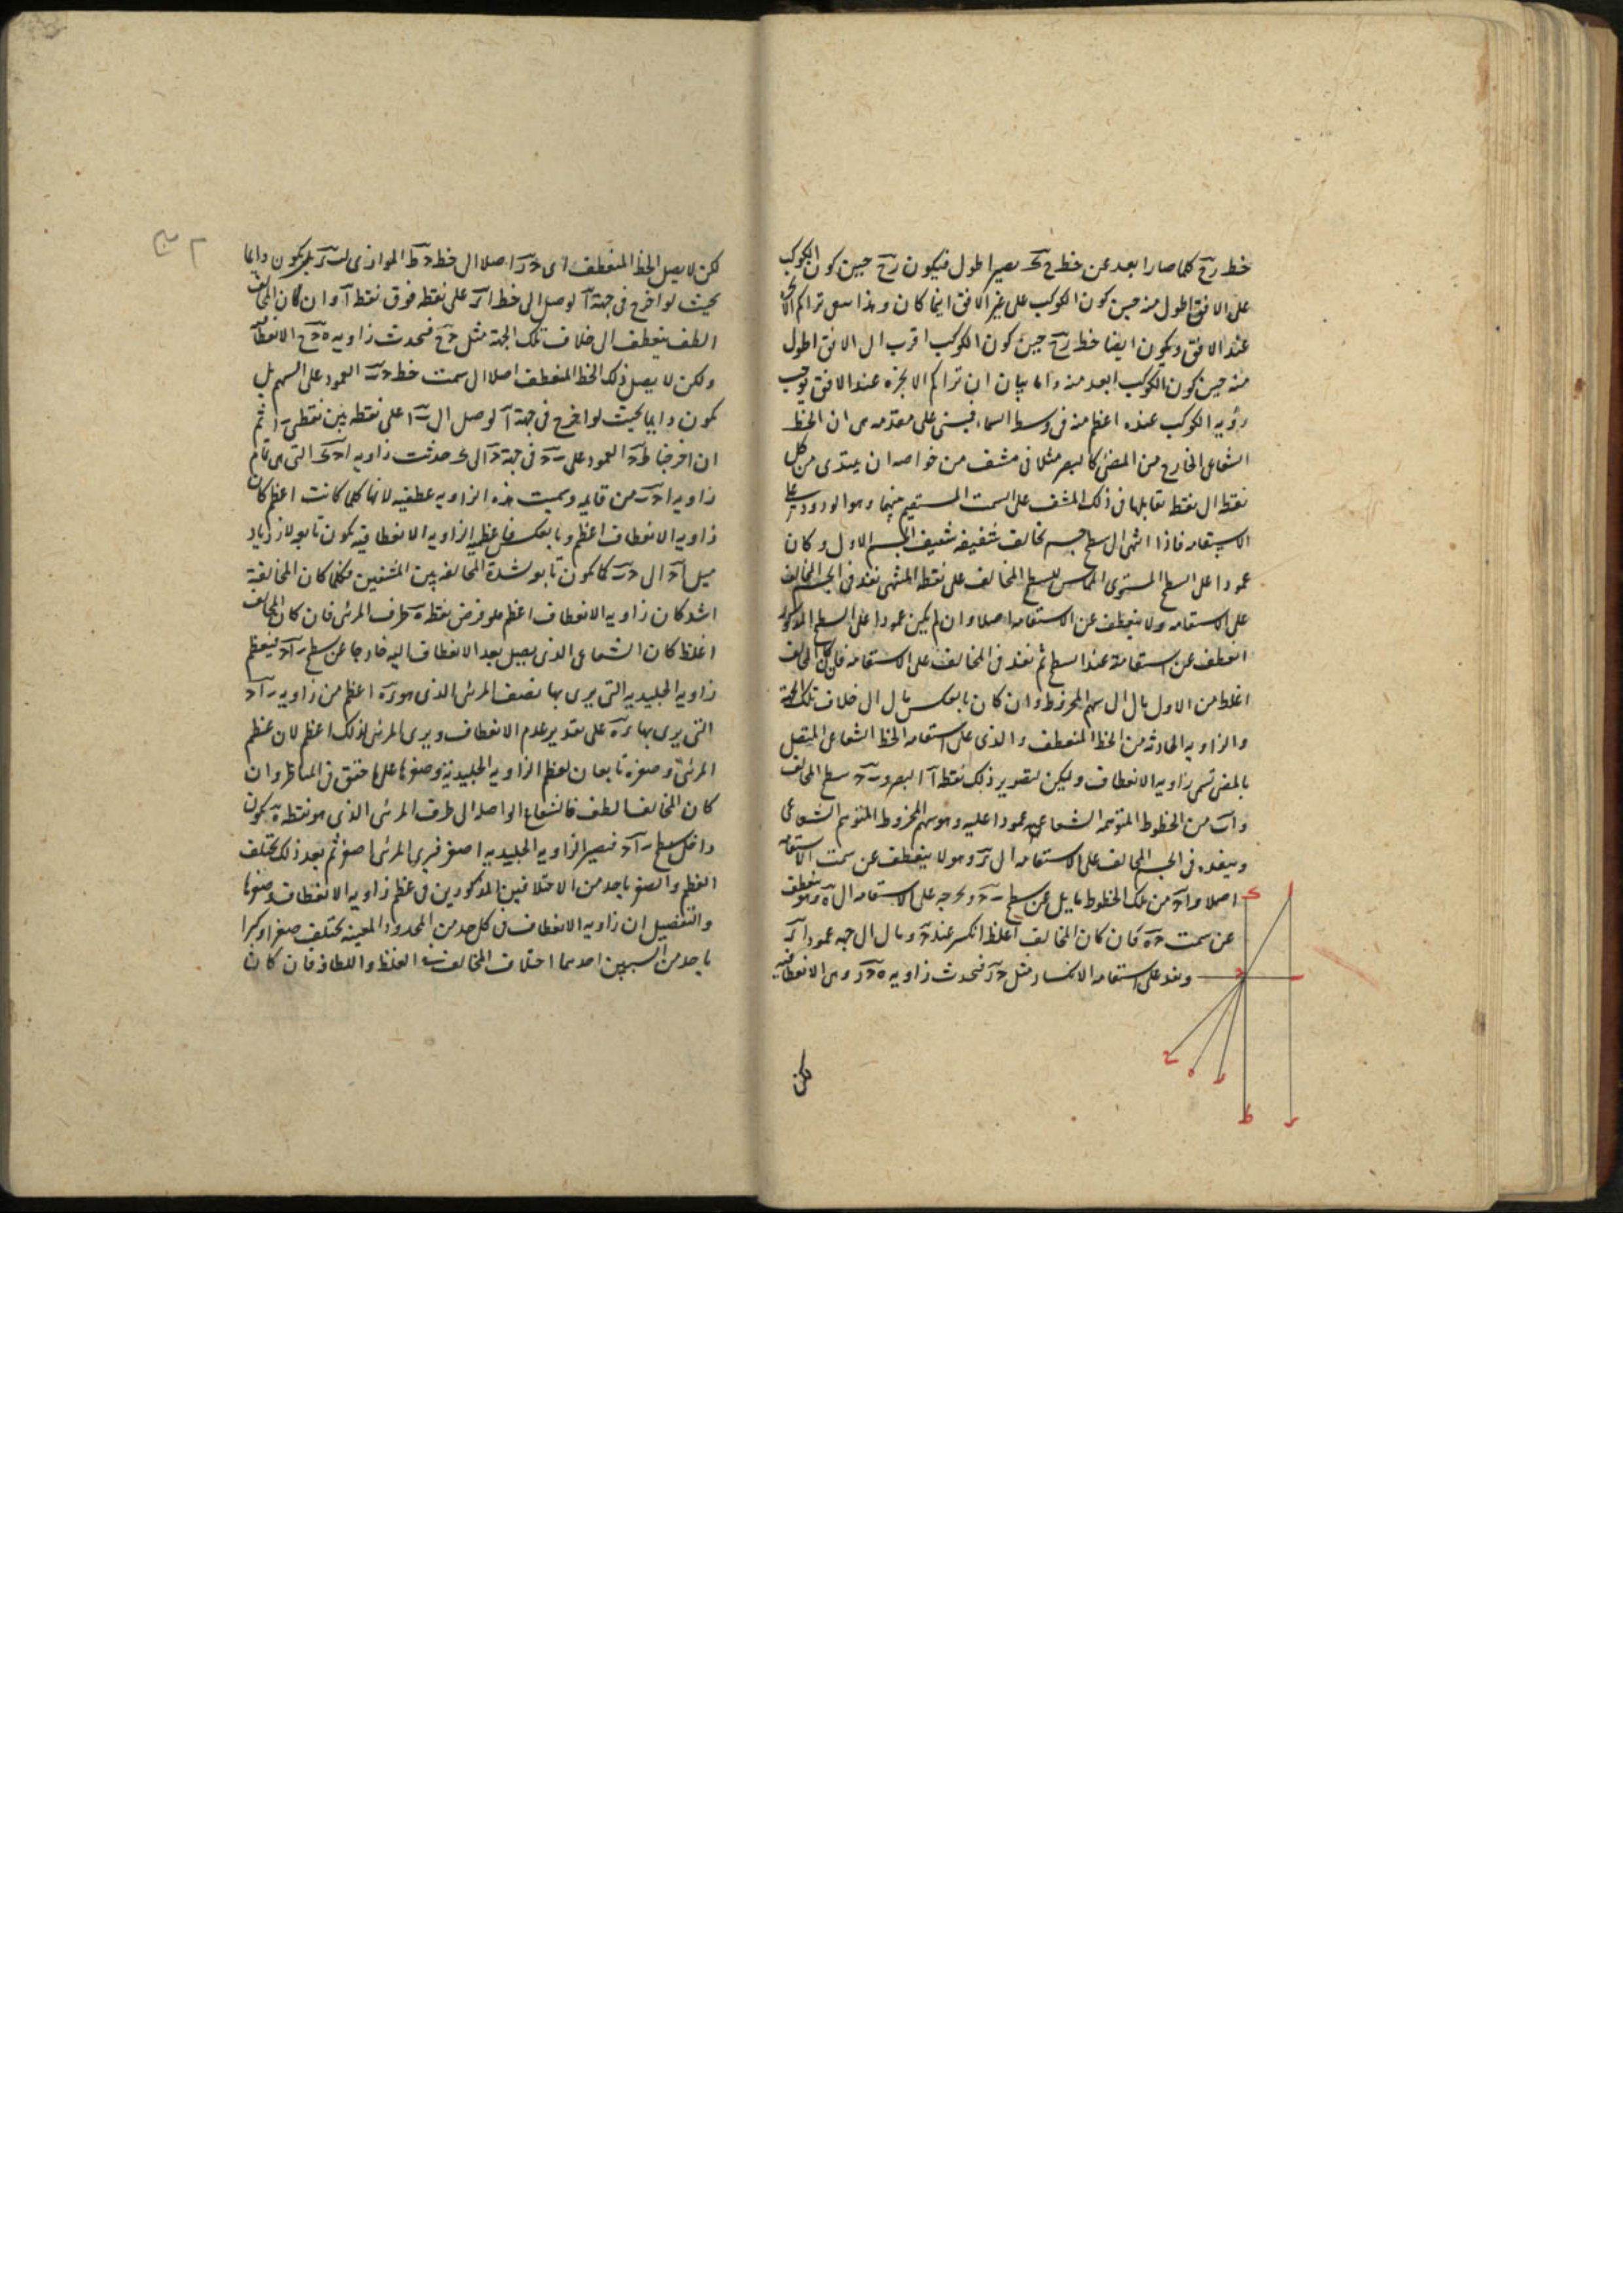 خط زح كلما صار ابعد عن خط ح ى يصير اطول فيكون زح حين كون الكوكب
على الافق اطول منه حين كون الكوكب على غير الافق اينما كان وهذا معنى تراكم الابخرة
عند الافق ويكون ايضا خط زح حين كون الكوكب اقرب الى الافق اطول
منه حين كون الكوكب ابعد منه واما بيان ان تراكم الابخرة عند الافق يوجب
رؤية الكوكب عنده اعظم منه في وسط السماء فيبتنى على مقدمة هى ان الخط
الشعاعى الخارج من المضئ كالبصر مثلا فى مشف من خواصه ان يبتدى من كل
نقطة الى نقطة تقابلها فى ذلك المشف على السمت المستقيم بينهما وهو الورود على
الاستقامة فاذا انتهى الى سطح جسم تخالف شفيفه شفيف الجسم الاول وكان
عمودا على السطح المستوى المماس للسطح المخالف على نقطة المنتهى نفذ فى الجسم المخالف
على الاستقامة ولا ينعطف عن الاستقامة اصلا وان لم يكن عمودا على السطح المذكور
انعطف عن استقامته عند السطح ثم نفذ فى المخالف على الاستقامة فان كان المخالف
اغلظ من الاول مال الى سهم المخروط وان كان بالعكس مال الى خلاف تلك الجهة
والزاوية الحادثة من الخط المنعطف والذى على استقامة الخط الشعاعى المتصل
بالمضئ تسمى زاوية الانعطاف وليكن لتصوير ذلك نقطة آ البصر و ب ح سطح المخالف
و اب من الخطوط المتوهمة الشعاعية عمودا عليه وهو سهم المخروط المتوهم الشعاعى
وينفذ فى الجسم المخالف على الاستقامة الى ر وهو لا ينعطف عن سمت الاستقامة
اصلا و اح من تلك الخطوط مايل عن سطح ب ح ويخرجه على الاستقامة الى ه وهو ينعطف
عن سمت ح ه فان كان المخالف اغلظ انكسر عند ح ومال الى جهة عمود ا ر
ونفذ على استقامة الانكسار مثل ح ز فتحدث زاوية ه ح ز وهى الانعطافية
لكن
لكن لا يصل الخط المنعطف اى ح ز اصلا الى خط ح ط الموازى ل ب ر بل يكون دايما
بحيث لو اخرج فى جهة آ لوصل الى خط ا ر على نقطة فوق نقطة آ وان كان المخالف
الطف ينعطف الى خلاف تلك الجهة مثل ح ح فتحدث زاوية ه ح ح الانعطاف
ولكن لا يصل ذلك الخط المنعطف اصلا الى سمت خط ح ب العمود على السهم بل
يكون دايما بحيث لو اخرج فى جهة آ لوصل الى ب ا على نقطة بين نقطتى ب ا ثم
ان اخرجنا ط ح العمود على ب ح فى جهة ح الى ى حدثت زاوية ا ح ى التى هى تمام
زاوية ا ح ب من قايمة وسميت هذه الزاوية عطفية لانها كلما كانت اعظم كان
زاوية الانعطاف اعظم وبالعكس فان عظم الزاوية الانعطافية يكون تابع لازدياد
ميل ا ح الى ح ب كما يكون تابع لشدة المخالفة بين المشفين فكلما كان المخالفة
اشد كان زاوية الانعطاف اعظم فلو فرض نقطة ه طرف المرئى فان كان المخالف
اغلظ كان الشعاع الذى يصل بعد الانعطاف اليه خارجا عن سطح ب ا ح فيعظم
زاوية الجليدية التى يرى بها نصف المرئى الذى هو ر ه اعظم من زاوية ب ا ح
التى يرى بها ر ه على تقدير عدم الانعطاف ويرى المرئى لذلك اعظم لان عظم
المرئى وصغره تابعان لعظم الزاوية الجليدية وصغرها على ما حقق فى المناظر وان
كان المخالف الطف فالشعاع الواصل الى طرف المرئى الذى هو نقطة ه يكون
داخل سطح ب ا ح فتصير الزاوية الجليدية اصغر فيرى المرئى اصغر ثم بعد ذلك يختلف
العظم والصغر باحد من الاختلافين المذكورين فى عظم زاوية الانعطاف وصغرها
والتفصيل ان زاوية الانعطاف فى كل حد من الحدود المعينة يختلف صغرا وكبرا
باحد من السببين احدهما اختلاف المخالف فى الغلظ واللطافة فان كان